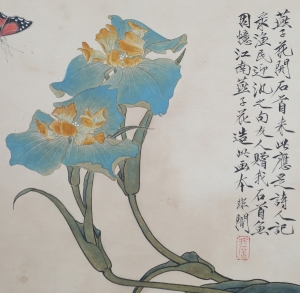 燕子花開石首来此應是詩人記
乘漁民迎汎之句友人贈我石首魚
因憶江南燕子花造此画本 非闇